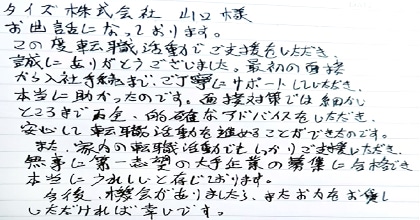 タイズ株式会社 山口様
お世話になっております。
この度転職活動でご支援をいただき、
誠にありがとうございました。最初の面接
から入社手続まで、ご丁寧にサポートしていただき、
本当に助かったのです。面接対策では細かい
ところまで 、的確なアドバイスをしいただき、
安心して転職活動を進めることができたのです。
また、家内の転職活動でもしっかりご支援いただき、
無事に第一志望の大手企業の募集に合格でき
本当にうれしいと存じております。
今後、機会がありましたら、またお力をお貸し
いただければ幸いです。